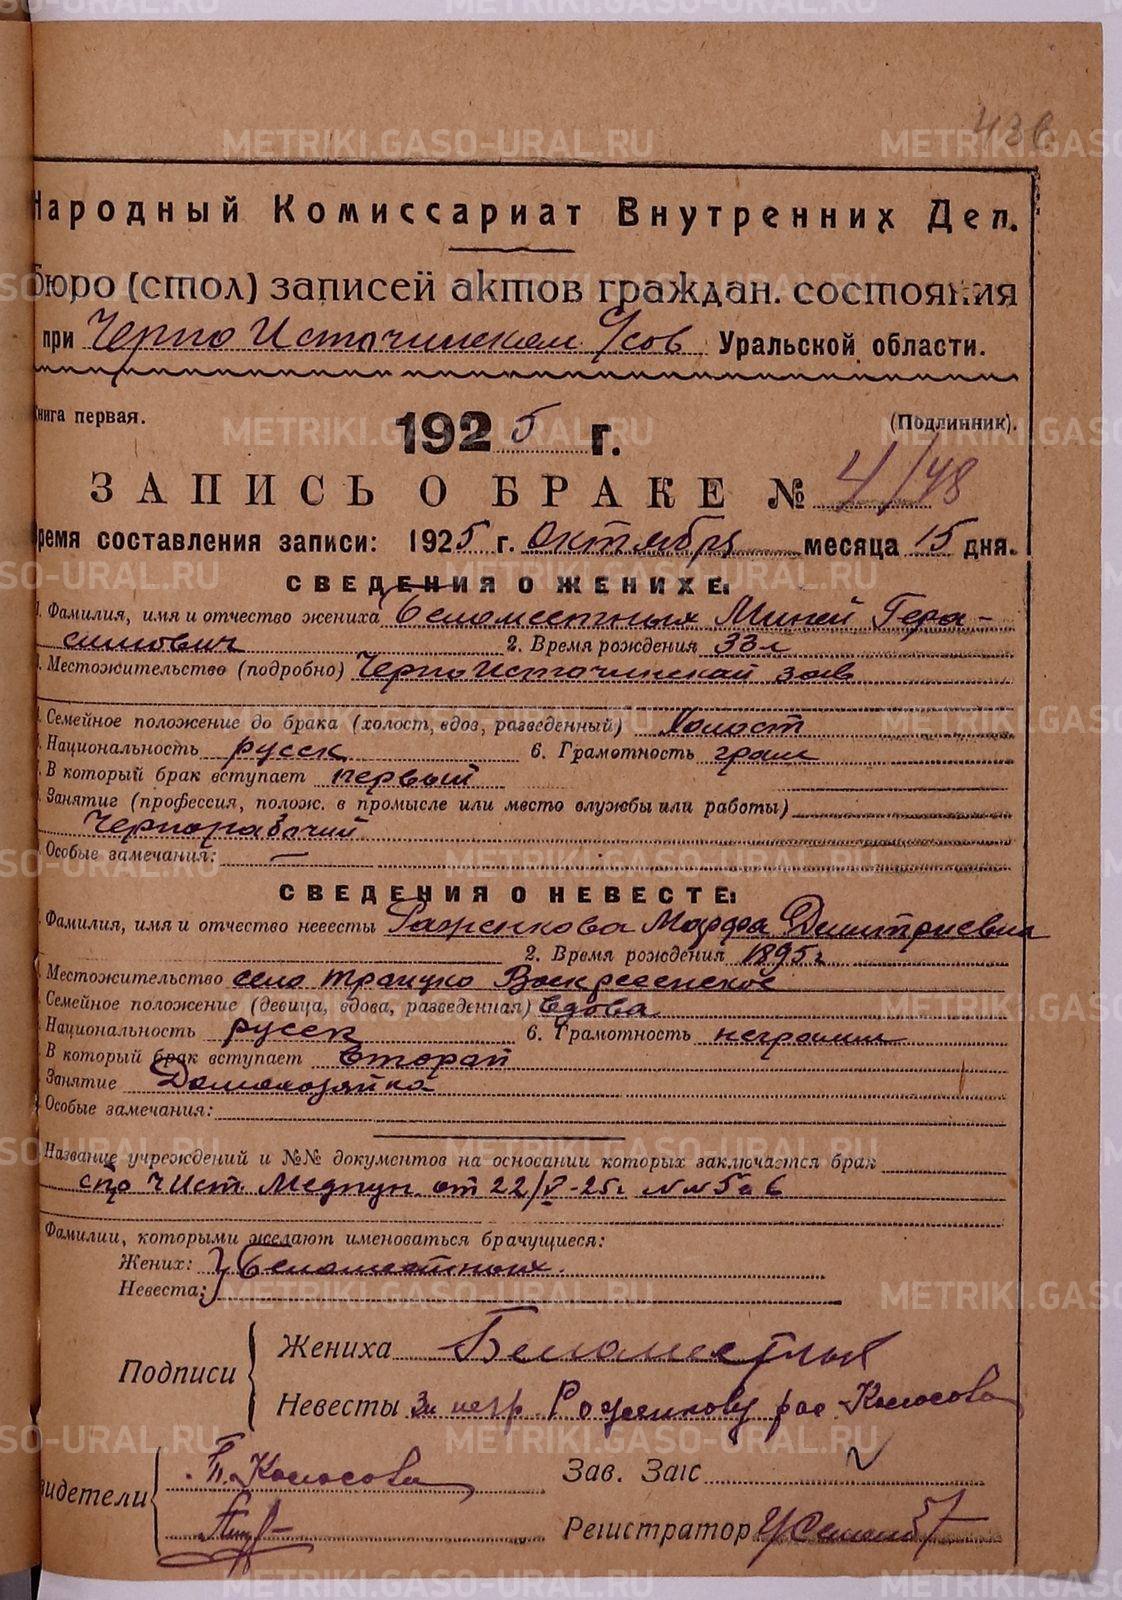 436
Народный Комиссариат Внутренних Дел.
Бюро (стол) записей актов граждан. состояния
при Черно Источинском С/сов Уральской области.
Книга первая.
1925 г.
(Подлинник).
ЗАПИСЬ О БРАКЕ № 4/48
Время составления записи: 1925 г. Октября месяца 15 дня.
СВЕДЕНИЯ О ЖЕНИХЕ:
1. Фамилия, имя и отчество жениха Беломестных Миней Гера-
симович 2. Время рождения 33 л
Местожительство (подробно) Черно Источинский зав
Семейное положение до брака (холост, вдов, разведенный) Холост
Национальность русск 6. Грамотность грам
В который брак вступает первый
Занятие (профессия, полож. в промысле или место службы или работы)
Чернорабочий
Особые замечания: —
СВЕДЕНИЯ О НЕВЕСТЕ:
Фамилия, имя и отчество невесты Раженкова Марфа Димитриевна
2. Время рождения 1895 г
Местожительство село Троицко Воскресенское
Семейное положение (девица, вдова, разведенная) Вдова
Национальность русск 6. Грамотность неграмм
В который брак вступает Второй
Занятие Домохозяйка
Особые замечания:
Название учреждений и №№ документов на основании которых заключается брак
спр Ч Ист. Медпун. от 22/V-25 г N N 5 и 6
Фамилии, которыми желают именоваться брачущиеся:
Жених: Беломестных.
Невеста:
Подписи
Жениха Беломестных
Невесты За негр. Роженкову рас Колосова
Свидетели
Т. Колосова
Зав. Загс
Регистратор
METRIKI.GASO-URAL.RU